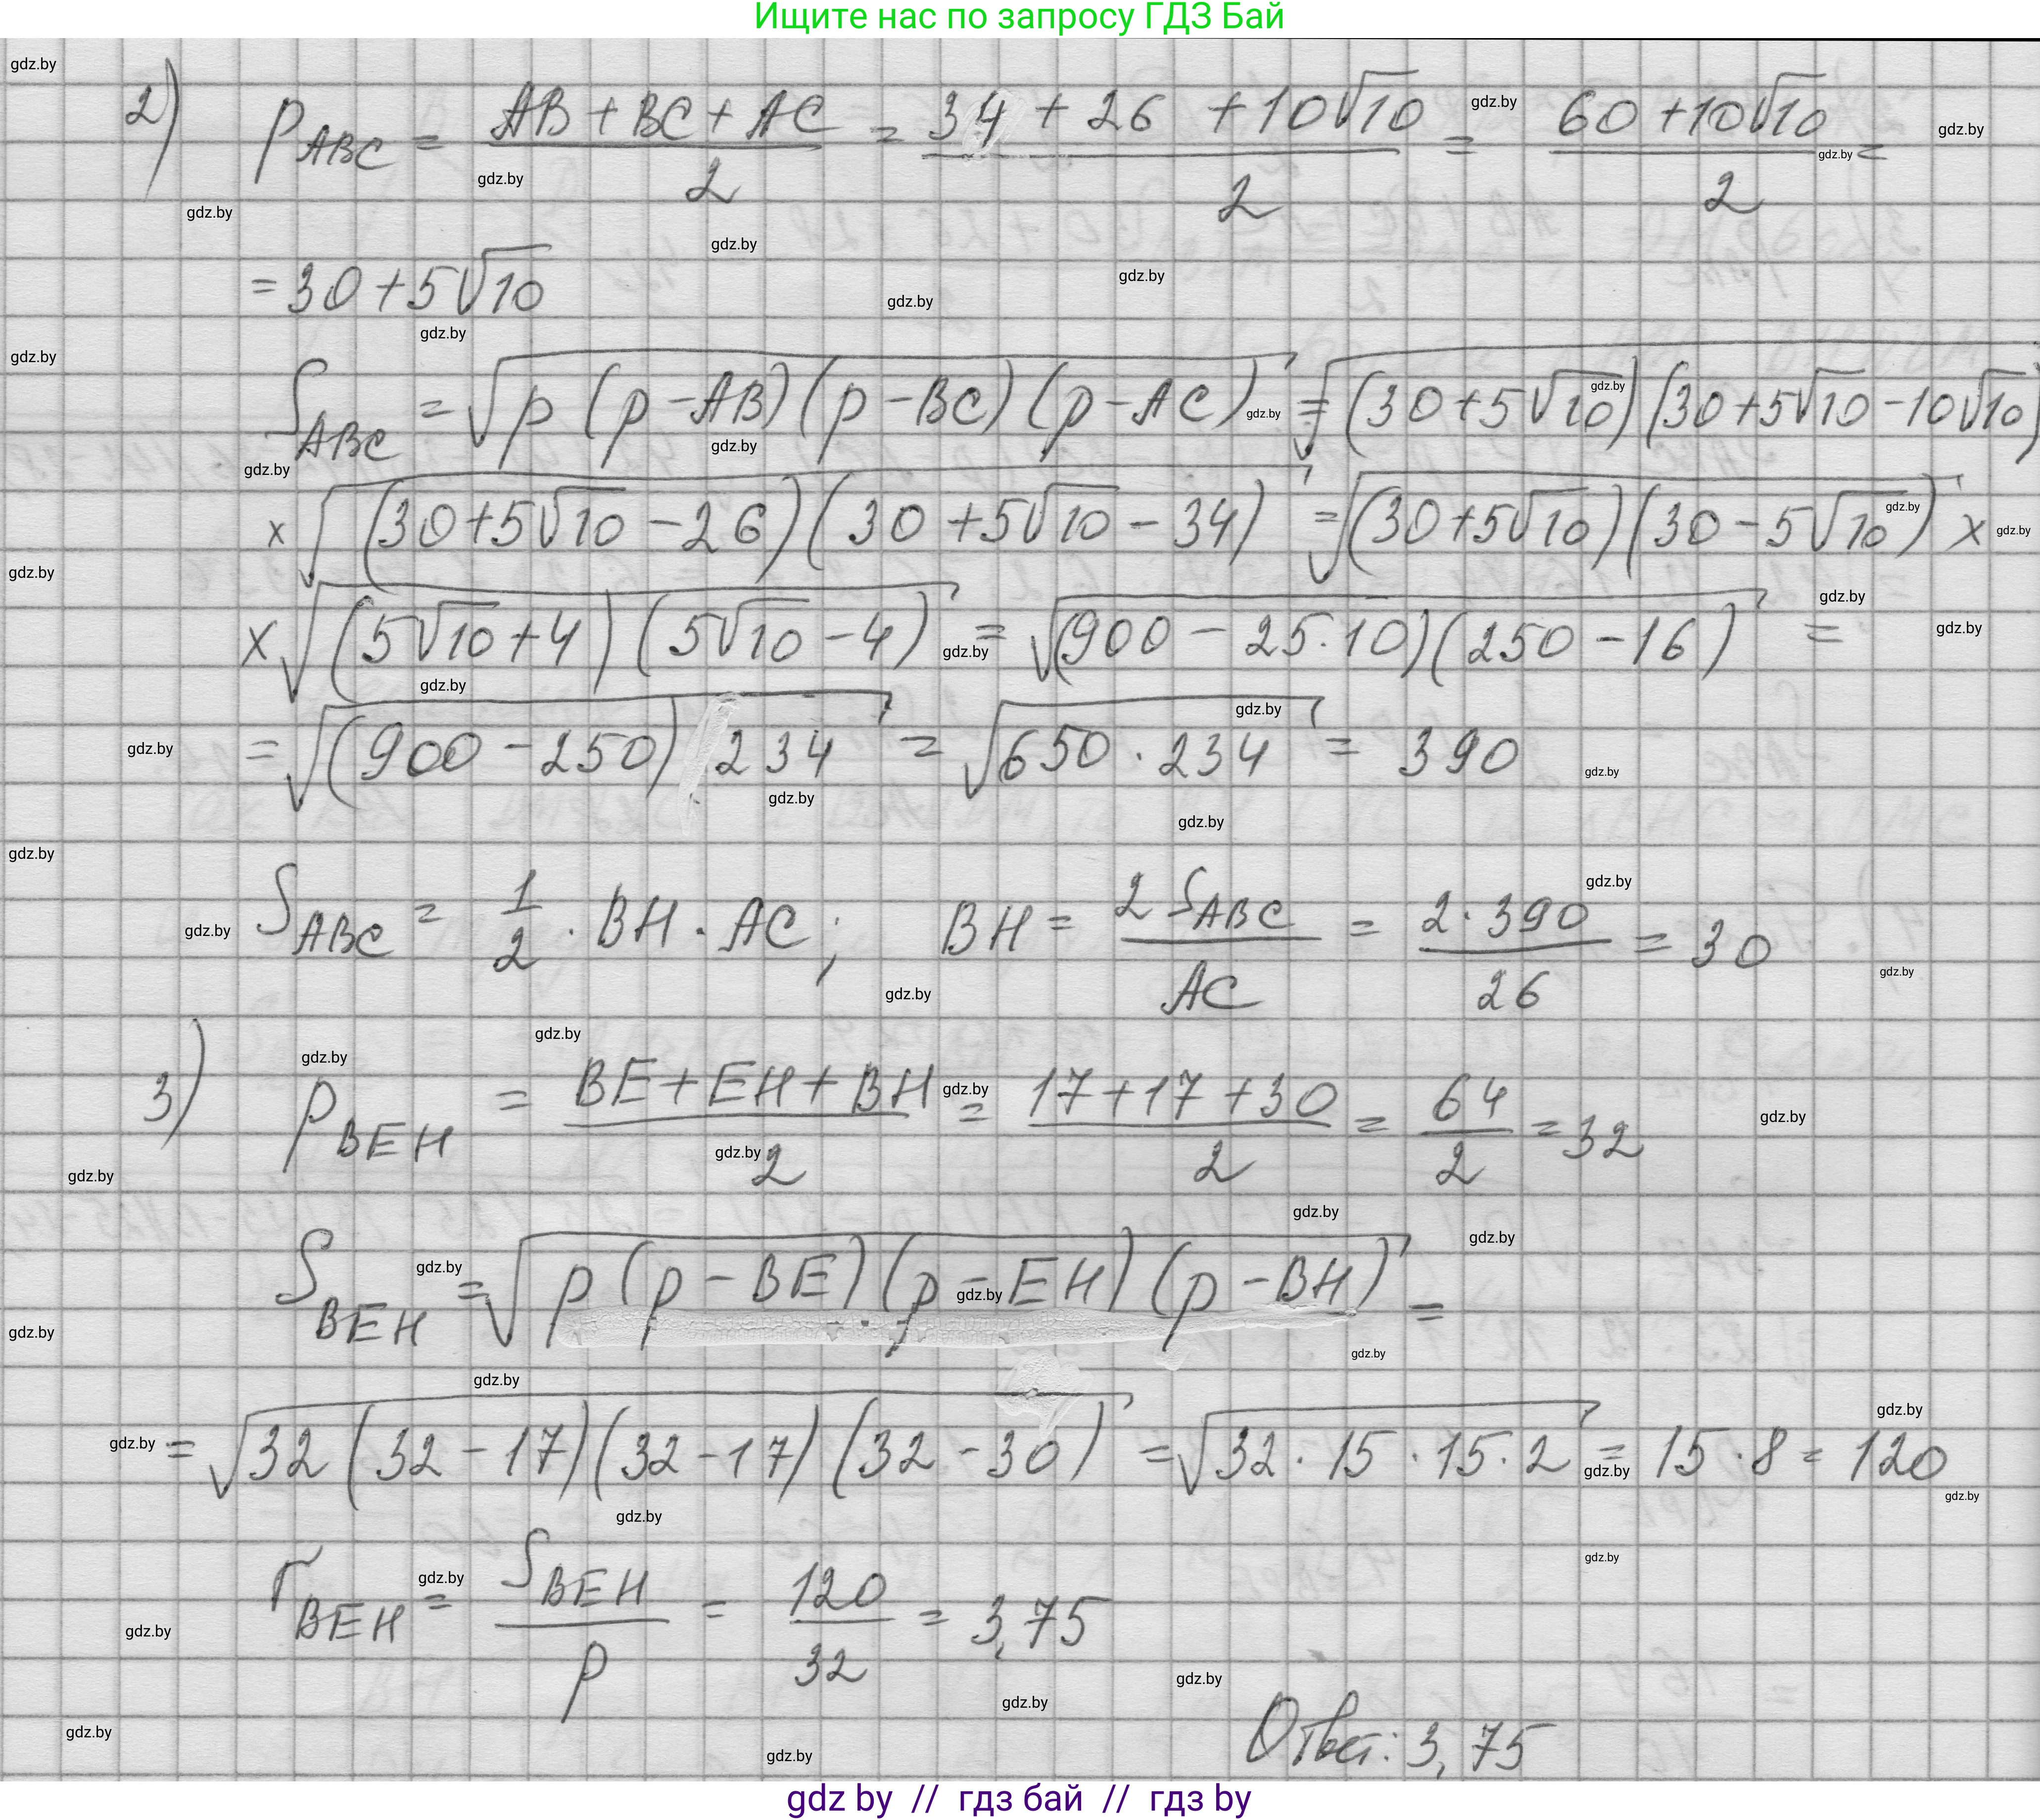 Ищите нас по запросу ГДЗ Бай
2) p_ABC = (AB + BC + AC)/2 = (34 + 26 + 10√10)/2 = (60 + 10√10)/2 =
= 30 + 5√10
S_ABC = √(p (p - AB) (p - BC) (p - AC)) = √((30 + 5√10) (30 + 5√10 - 10√10))
× √((30 + 5√10 - 26) (30 + 5√10 - 34)) = √((30 + 5√10) (30 - 5√10)) ×
× √((5√10 + 4) (5√10 - 4)) = √((900 - 25 · 10) (250 - 16)) =
= √((900 - 250) 234) = √(650 · 234) = 390
S_ABC = 1/2 · BH · AC; BH = 2 S_ABC/AC = 2 · 390/26 = 30
3) p_BEH = (BE + EH + BH)/2 = (17 + 17 + 30)/2 = 64/2 = 32
S_BEH = √(p (p - BE) (p - EH) (p - BH)) =
= √(32 (32 - 17) (32 - 17) (32 - 30)) = √(32 · 15 · 15 · 2) = 15 · 8 = 120
r_BEH = S_BEH/p = 120/32 = 3,75
Ответ: 3,75
gdz by // гдз бай // гдз by